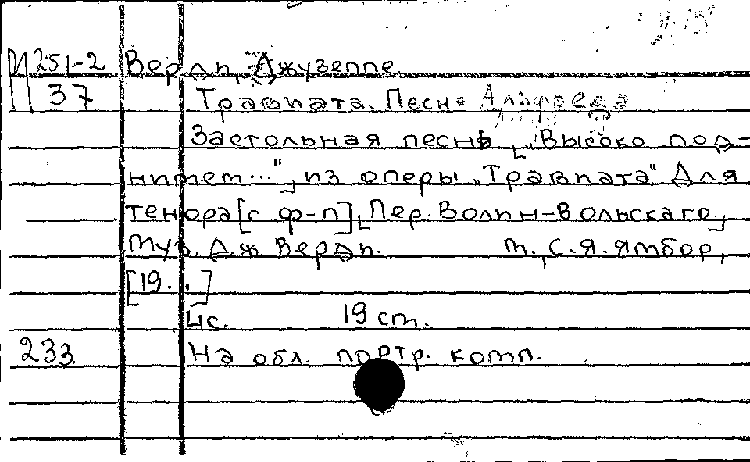 П 251-2 Верди, Джузеппе.
37 Травиата. Песня Альфреда
Застольная песнь ["Высоко под-
нимем..."], из оперы "Травиата" Для
тенора [с ф-п], [Пер. Волин-Вольскаго,]
Муз. Дж Верди. М., С.Я. Ямбор,
[19..]
4с. 19 ст.
233 На обл. портр. комп.